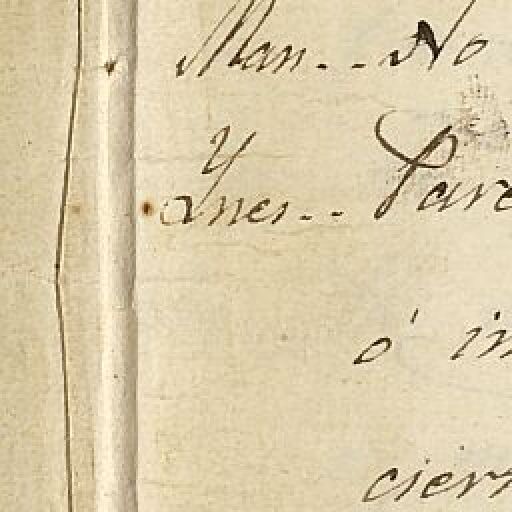 Man.. No
Ynes.. Pare
ó in
cier